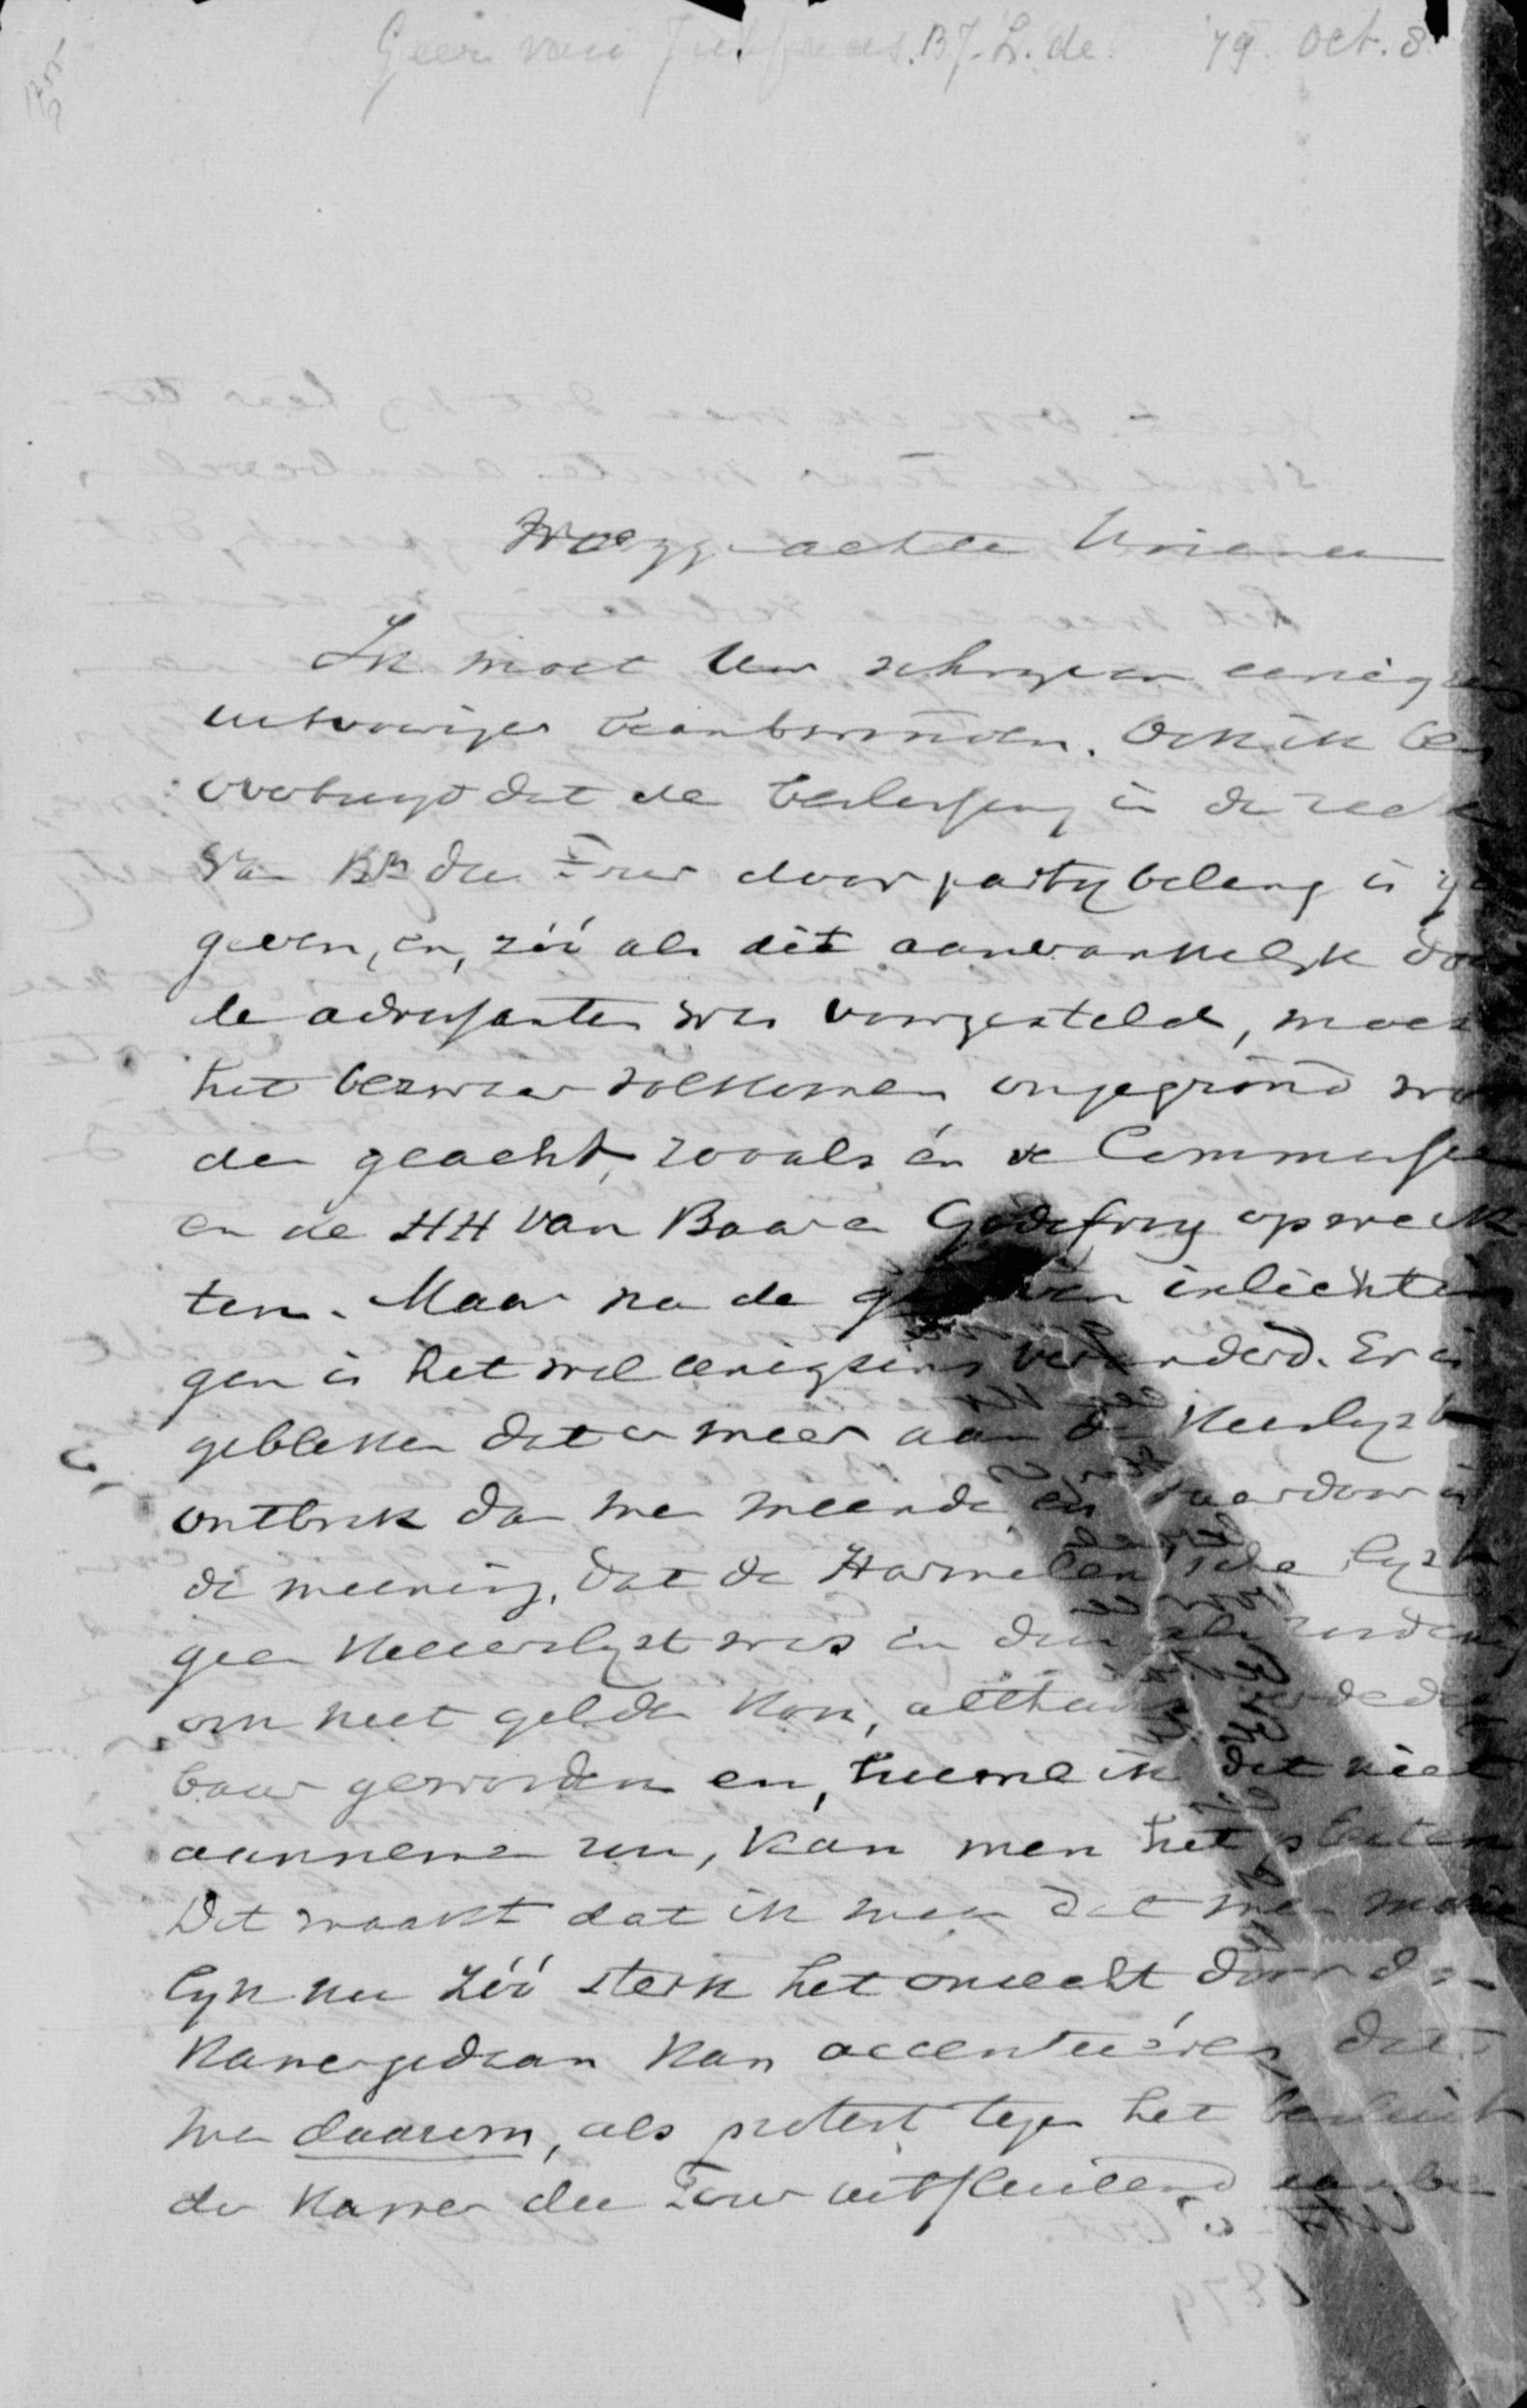 Geer van Jutfaas. B.J.L. de. '79 Oct. 8
Hooggeachte Vriend
Ik moet Uw schryven eenigzin
uitvoeriger beantwoorden. Ook ik ben
overtuigd dat de beslissing in de zaak
van Bn du Tour door partybelang is ge
geven, en, zóó als dit aanvankelyk door
de adressanten was voorgesteld, moest
het bezwaar volkomen ongegrond wor
den geacht, zooals én de Commissie
en de HH van Baar en Godefroy opmerk
ten. Maar na de gegeven inlichtin
gen is het wel eenigzins veranderd. Er is
gebleken dat er meer aan de Kieslyst
ontbrak dan men meende en daardoor is
de meening, dat de Harmelensche lyst
geen Kiezerslyst was en dus
om niet gelden kon, althans verdedig
baar geworden en, hoewel ik dit niet
aannemen zou, kan men het sluiten
Dit maakt dat ik meen dat men moeie
lyk nu zóó sterk het onrecht door de
Kamer gedaan kan accentueéren, dat
men daarom, als protest tegen het besluit
der Kamer du Tour uitsluitend aanbe